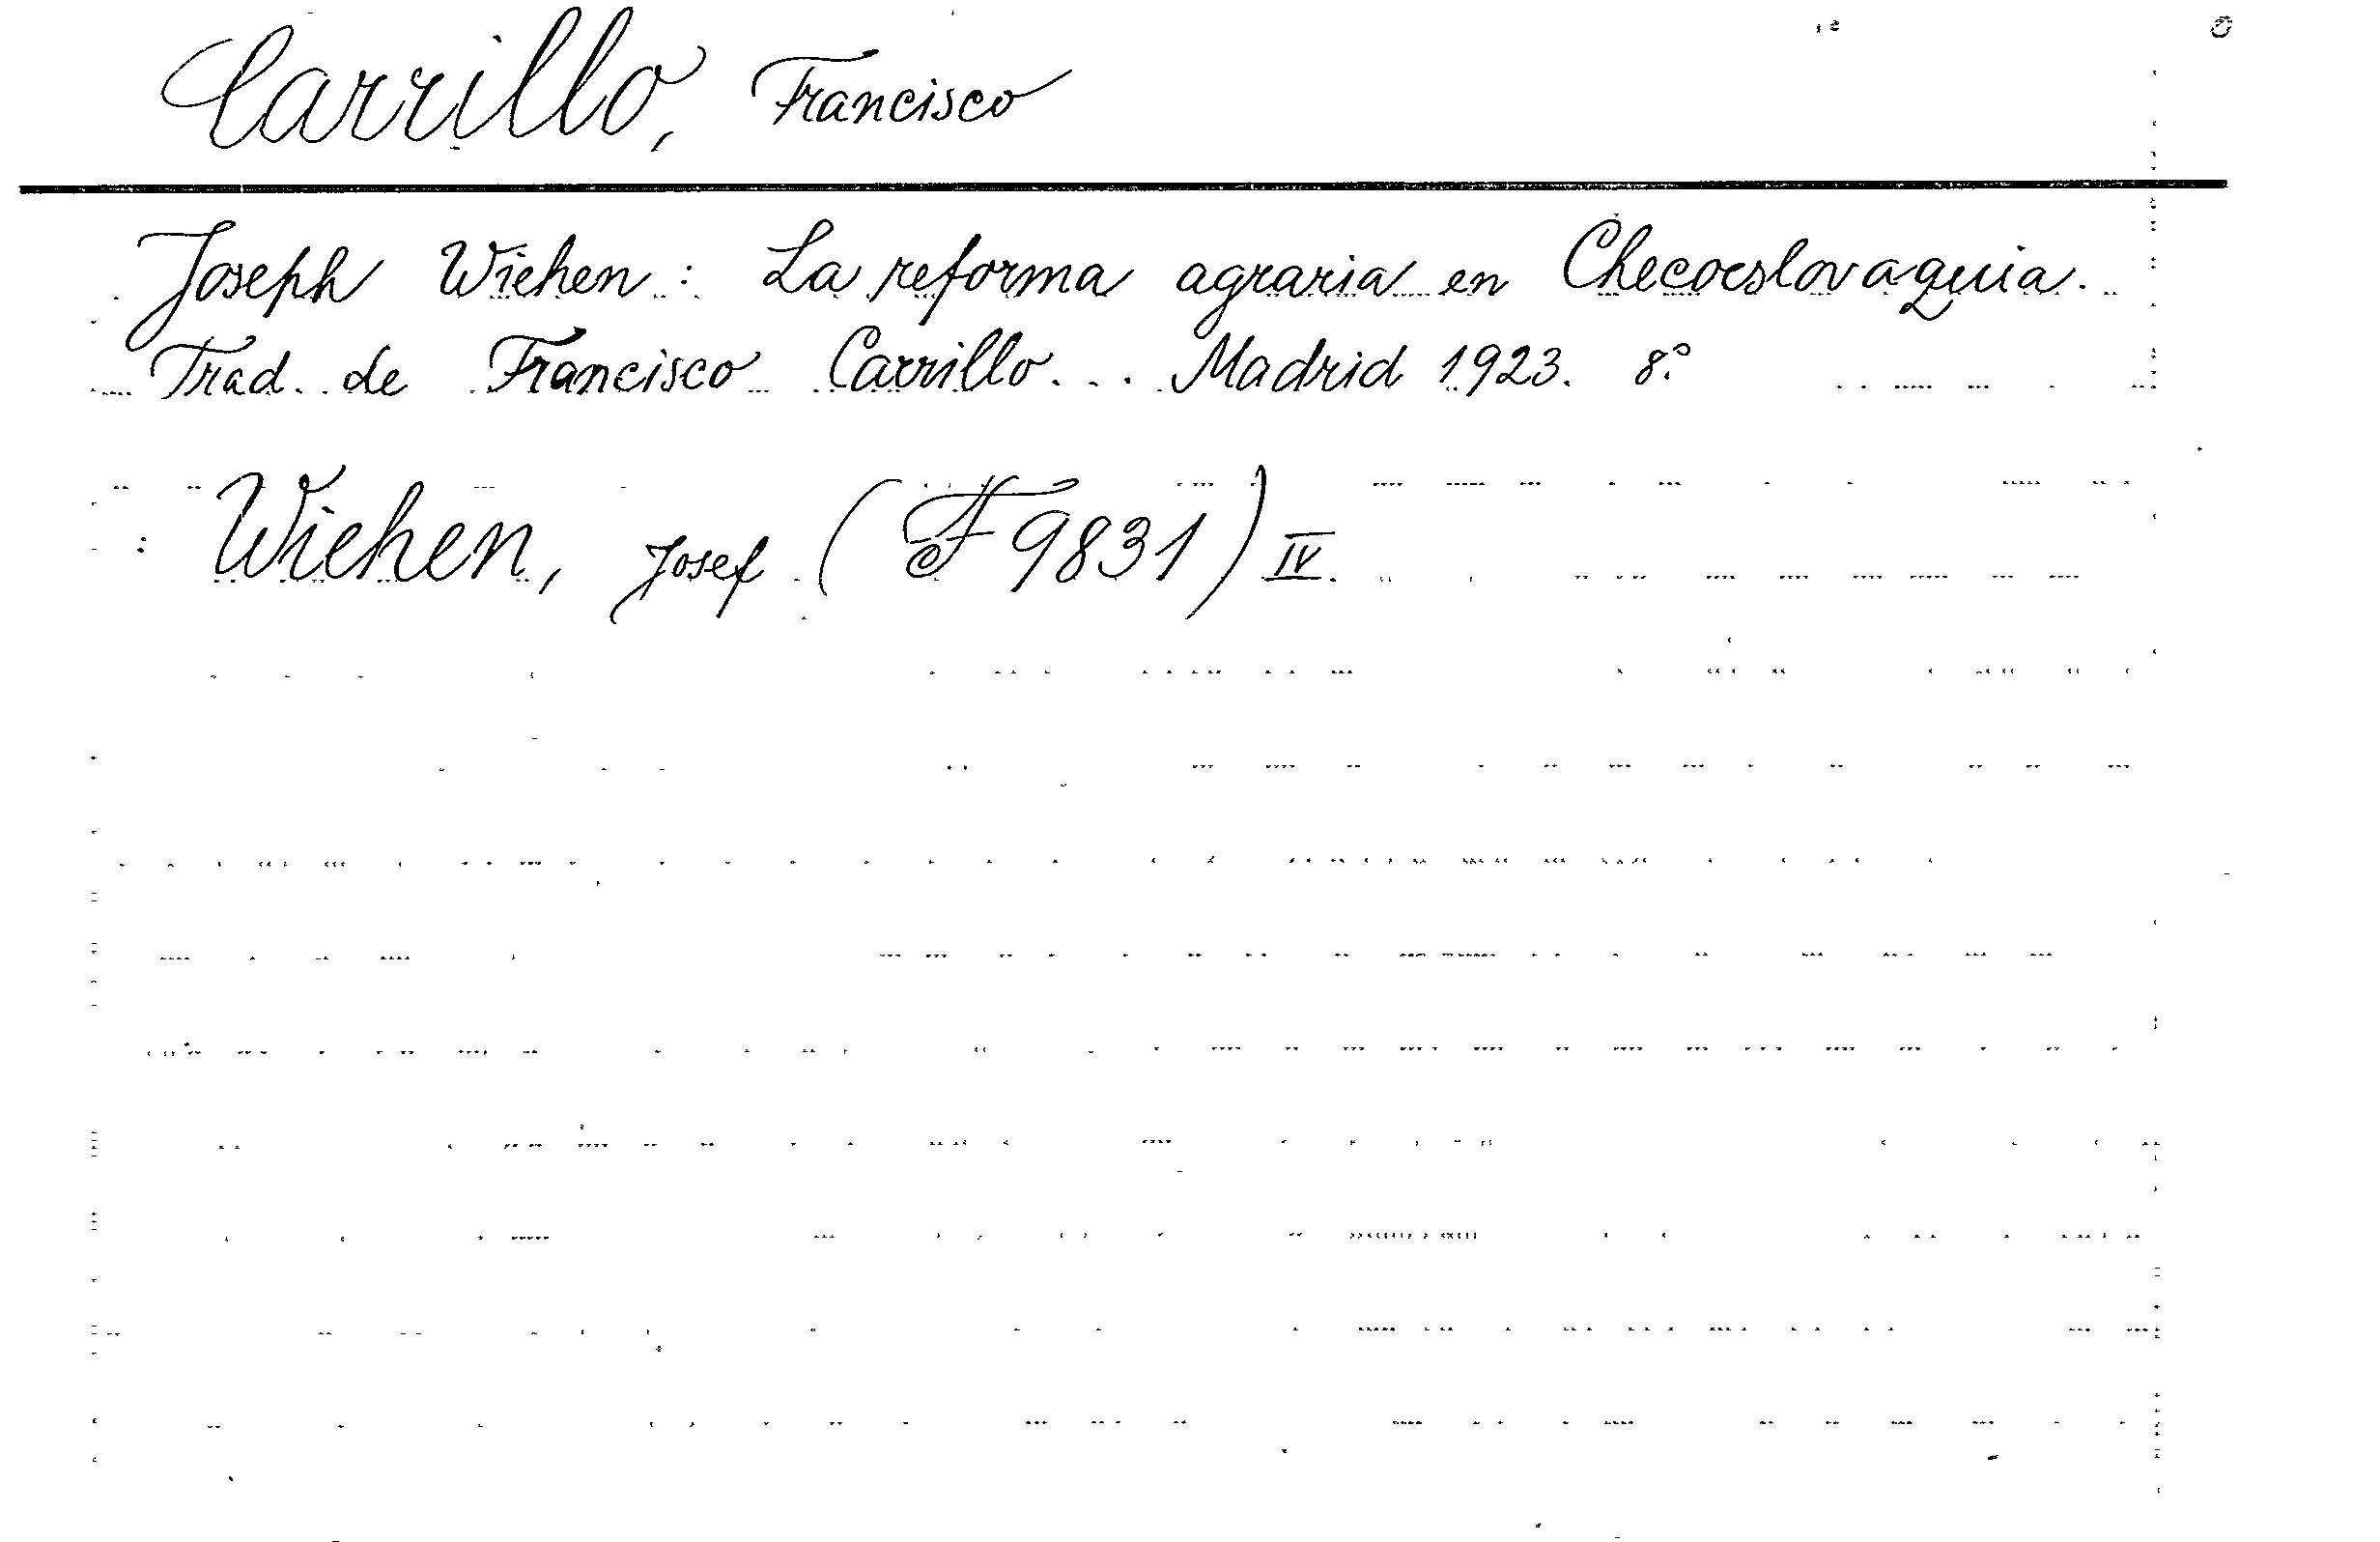 Carrillo, Francisco
Joseph Wiehen: La reforma agraria en Checoeslovaquia.
Trad. de Francisco Carrillo... Madrid 1923. 8.°
: Wiehen, Josef (F 9831) IV.